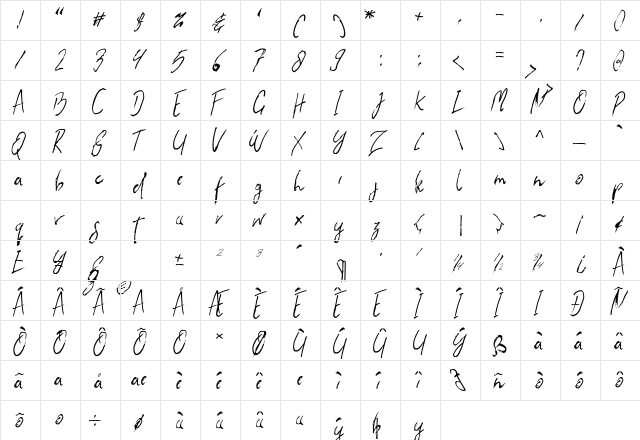 ! " # $ % & ' ( ) * + , - . / 0
1 2 3 4 5 6 7 8 9 : ; < = > ? @
A B C D E F G H I J K L M N O P
Q R S T U V W X Y Z [ \ ] ^ _ `
a b c d e f g h i j k l m n o p
q r s t u v w x y z { | } ~ ¡ ¢
£ ¥ § ± ² ³ ´ ¶ · ¹ ¼ ½ ¾ ¿ À
Á Â Ã Ä Å Æ È É Ê Ë Ì Í Î Ï Ð Ñ
Ò Ó Ô Õ Ö × Ø Ù Ú Û Ü Ý ß à á â
ã ä å æ è é ê ë ì í î ï ð ñ ò ó ô
õ ö ÷ ø ù ú û ü ý þ ÿ